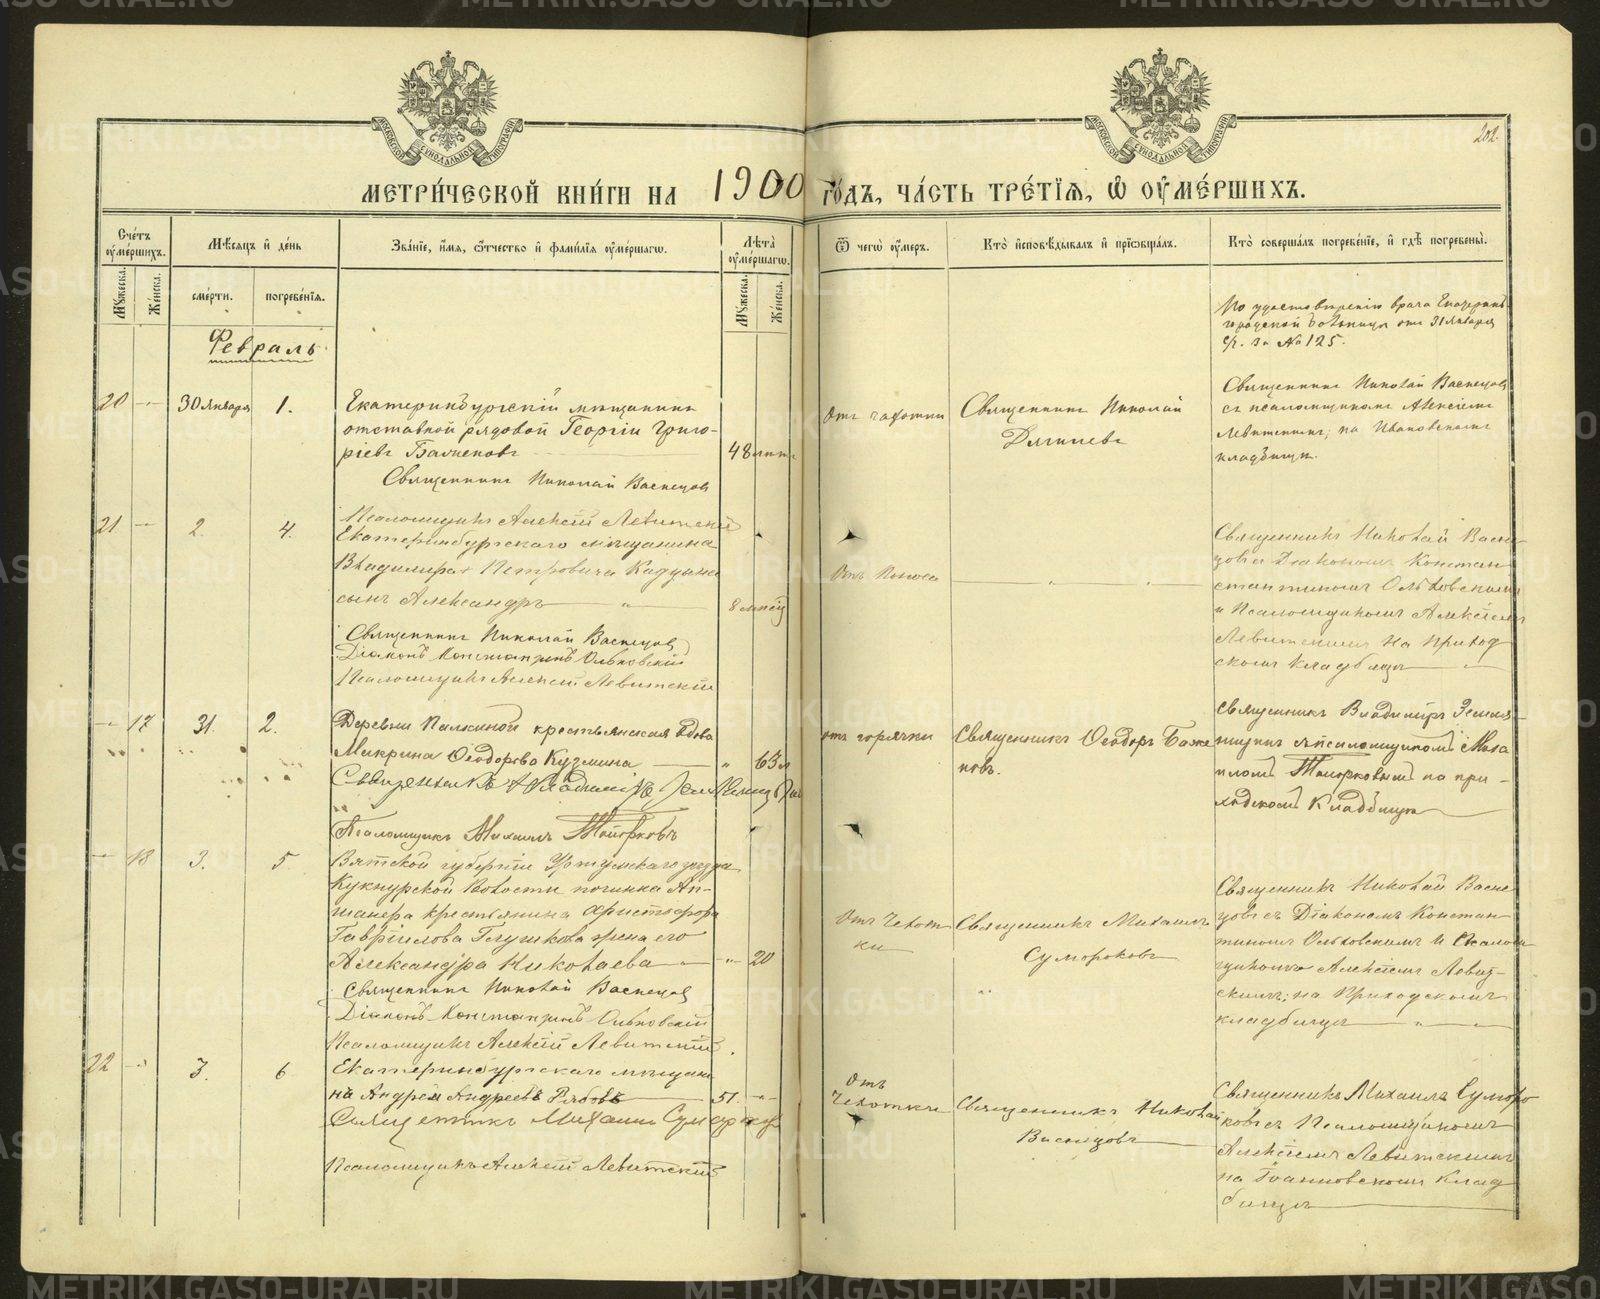 202.
МЕТРИ́ЧЕСКОЙ КНИ́ГИ НА 1900 ГО́ДЪ, ЧА́СТЬ ТРЕ́ТІЯ, Ѡ ОУМЕ́РШИХЪ.
Сче́тъ оуме́ршихъ.
Мꙋжеска.
Же́нска.
Мѣсяцъ и де́нь
сме́рти.
погребе́нїя.
Зва́нїе, и́мя, ѻ́тчество и фами́лїя оуме́ршагѡ.
Лѣта̀ оуме́ршагѡ.
Мꙋжеска.
Же́нска.
Ѿ чегѡ̀ оу́меръ.
Кто̀ исповѣдывалъ и прїѡбща́лъ.
Кто̀ соверша́лъ погребе́нїе, и гдѣ̀ погребены̀.
Февраль
По удостовѣренію врача Екатерин-
городской больницы отъ 31 Января
с/г. за № 125.
20
30 Января
1.
Екатеринбургскій мѣщанинъ
отставной рядовой Георгій Григо-
ріевъ
48 лѣтъ
Священникъ Николай Васнецовъ
Псаломщикъ Алексій Левитскій
Отъ чахотки
Священникъ Николай
Священникъ Николай Васнецовъ
съ псаломщикомъ Алексіемъ
Левитскимъ, на Ивановскомъ
кладбищѣ.
21
2.
4.
Екатеринбургскаго мѣщанина
Владиміра Петровича
сынъ Александръ
8 мѣсяц
Священникъ Николай Васнецовъ
Діаконъ Константинъ Ольховскій
Псаломщикъ Алексій Левитскій
Отъ поноса
Священникъ Николай Васне-
цовъ съ Діакономъ Констан-
стантиномъ Ольховскимъ
и Псаломщикомъ Алексіемъ
Левитскимъ на приход
скомъ кладбищѣ
17
31.
2.
Деревни Палкиной крестьянская вдова
Макрина Ѳеодорова Кузмина
63 л
Священникъ Владиміръ Земляницынъ
Псаломщикъ Михаилъ
отъ горячки
Священникъ Ѳеодоръ Баже
новъ.
Священникъ Владиміръ Земля-
ницынъ съ псаломщикомъ Миха
иломъ на при-
ходскомъ кладбищѣ
18
3.
5
Вятской губерніи Уржумскаго уѣзда
Кукнурской волости починка Ап-
крестьянина Христофора
Гавріилова Глушкова жена его
Александра Николаева
20
Священникъ Николай Васнецовъ
Діаконъ Константинъ Ольховскій
Псаломщикъ Алексій Левитскій
Отъ Чехот
ки
Священникъ Михаилъ
Сумороковъ
Священникъ Николай Васне
цовъ съ Діакономъ Констан-
тиномъ Ольховскимъ и Псалом
щикомъ Алексіемъ Левит-
скимъ, на Приходскомъ
кладбищѣ
22
3.
6
Екатеринбургскаго мѣщани
на Андрея Андреевъ Рябовъ
51.
Священникъ Михаилъ Сумороковъ
Псаломщикъ Алексій Левитскій
Отъ
Чехотки
Священникъ Николай
Васнецовъ
Священникъ Михаилъ Суморо
ковъ съ Псаломщикомъ
Алексіемъ Левитскимъ
на Іоанновскомъ Клад
бищѣ